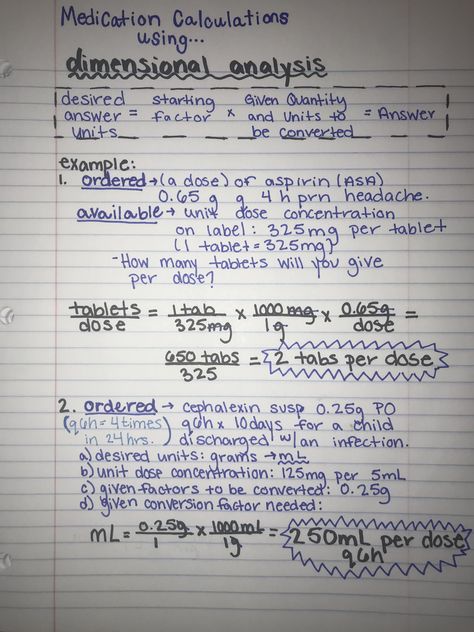 Medication Calculations
using...
dimensional analysis
desired starting Given Quantity
answer = factor × and units to = Answer
units be converted
example:
1. ordered → (a dose) of aspirin (ASA)
0.65 g q 4 h prn headache.
available → unit dose concentration
on label: 325mg per tablet
(1 tablet = 325mg)
- How many tablets will you give
per dose?
tablets/dose = 1 tab/325mg × 1000mg/1g × 0.65g/dose =
650 tabs/325 = 2 tabs per dose
2. ordered → cephalexin susp 0.25g PO
(q6h = 4 times q6h x 10days for a child
in 24hrs.) discharged w/an infection.
a) desired units: grams → mL
b) unit dose concentration: 125mg per 5mL
c) given factors to be converted: 0.25g
d) given conversion factor needed:
mL = 0.25g/1 × 1000mL/1g = 250mL per dose
q6h